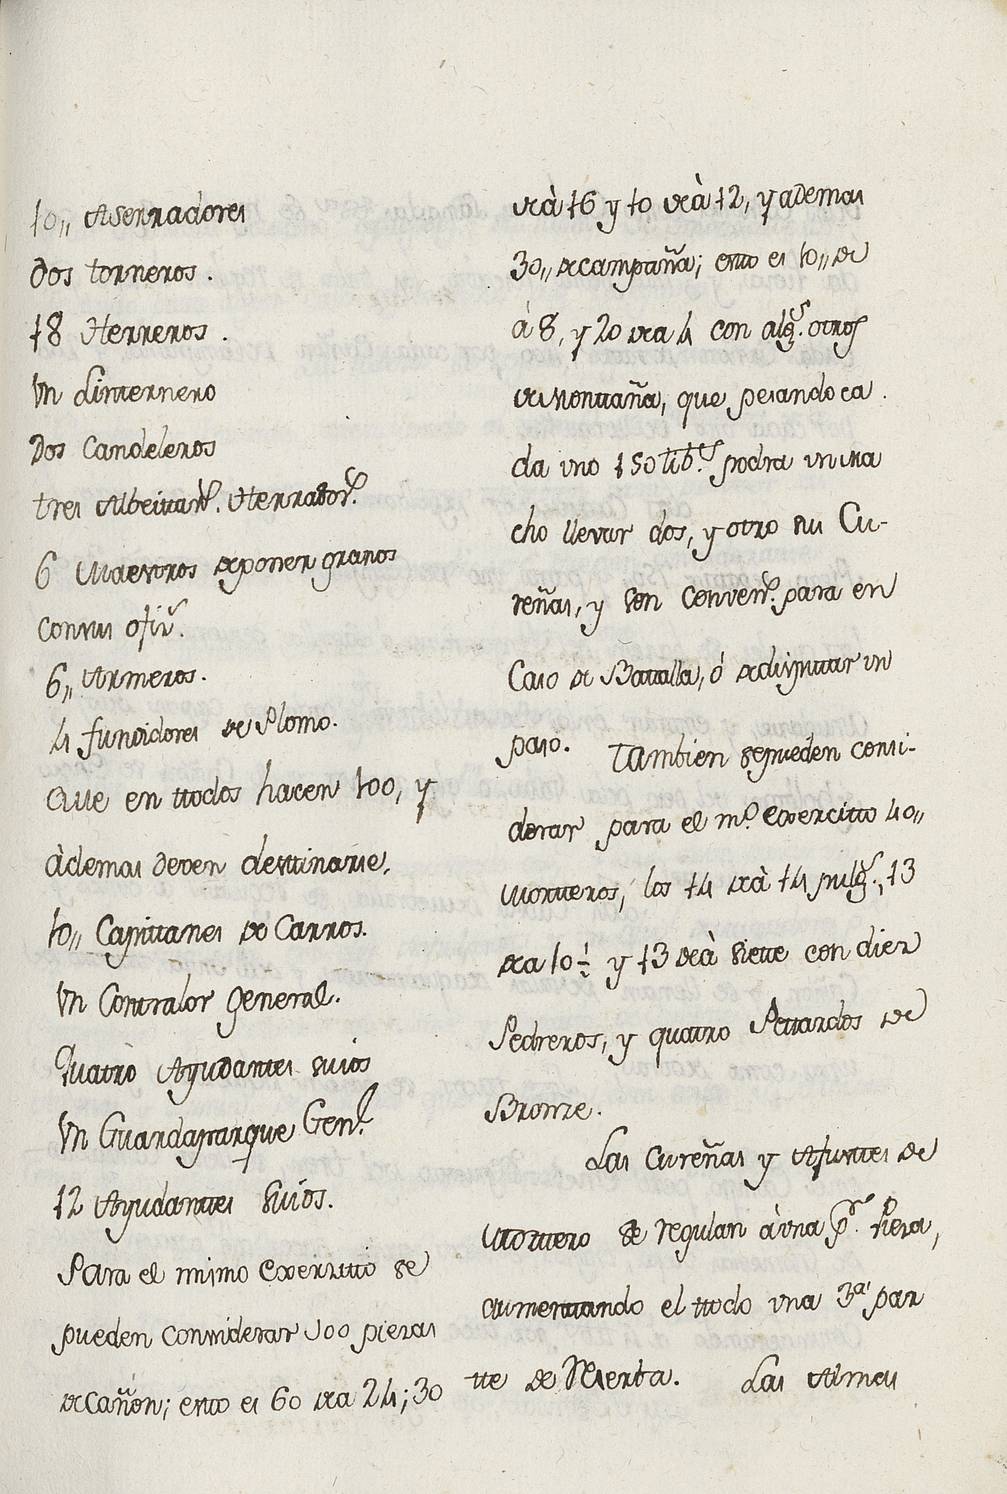 10,, Aserradores
dos torneros.
18 Herreros.
Vn Linternero
Dos Candeleros
tres Albeitar.s Herrador.s
6 Maestros de poner granos
con sus ofiz.s
6,, Armeros.
4 fundidores de Plomo.
Que en ttodos hacen 100, y
àdemas deven desttinarse,
10,, Capittanes de Carros.
Vn Contralor General.
Quatro Ayudanttes suios
Vn Guardaparque Gen.l
12 Ayudanttes Suios.
Para el mismo Exerzitto se
pueden Considerar 100 piezas
de Cañon; estto es 60 de a 24; 30
de à 16 y 10 de à 12, y ademas
30,, de campaña; estto es 10,, de
à 8, y 20 de a 4 con alg.s otros
de Monttaña, que pesando ca
da uno 150 lib.s podra un Ma
cho llevar dos, y otro sus Cu-
reñas, y son Conven.s para en
Caso de Battalla, ó de disputtar un
paso. Tambien se pueden consi-
derar para el m.o Exercitto 40,,
Mortteros, los 14 de à 14 pulg.s, 13
de a 10 1/2 y 13 de à Siette con diez
Pedreros, y quatro Pettardos de
Bronze.
Las Cureñas y Afusttes de
Morttero se regulan à una p.r Pieza,
aumenttando el ttodo una 3.a par
tte de Reserba. Las Almas